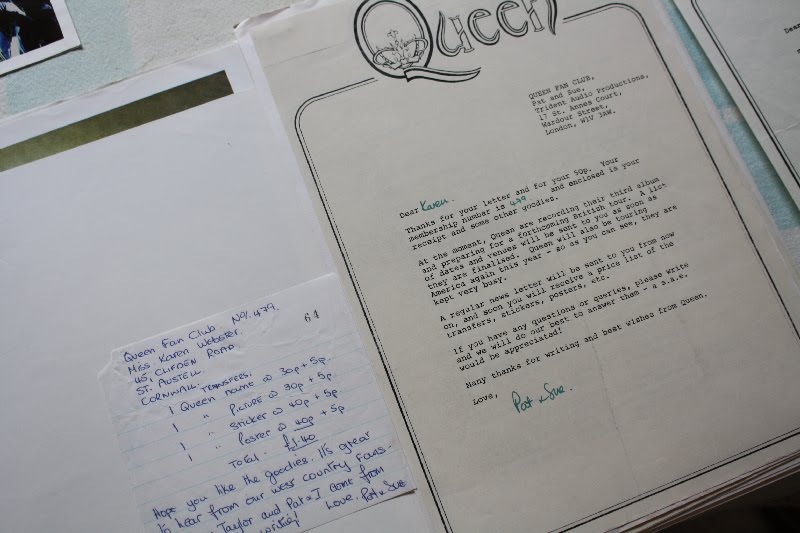 Queen
QUEEN FAN CLUB,
Pat and Sue,
Trident Audio Productions,
17 St. Annes Court,
Wardour Street,
London, W1V 3AW.
Dear Karen.
Thanks for your letter and for your 50p. Your
membership number is 479. and enclosed is your
receipt and some other goodies.
At the moment, Queen are recording their third album
and preparing for a forthcoming British tour. A list
of dates and venues will be sent to you as soon as
they are finalised. Queen will also be touring
America again this year - so as you can see, they are
kept very busy.
A regular news letter will be sent to you from now
on, and soon you will receive a price list of the
transfers, stickers, posters, etc.
If you have any questions or queries, please write
and we will do our best to answer them - a s.a.e.
would be appreciated!
Many thanks for writing and best wishes from Queen.
Love,
Pat & Sue.
Queen Fan Club. No. 479.
64
Miss Karen Webster.
45, Clifden Road
St. Austell
Cornwall.
1 Queen Transfers.
name @ 30p + 5p.
1 " Picture @ 30p + 5p.
1 " Sticker @ 40p + 5p
1 " Poster @ 40p + 5p
Total. £1.40
Hope you like the goodies. It's great
to hear from our west country fans.
Taylor and Pat & I come from
Love. Pat & Sue
Dear